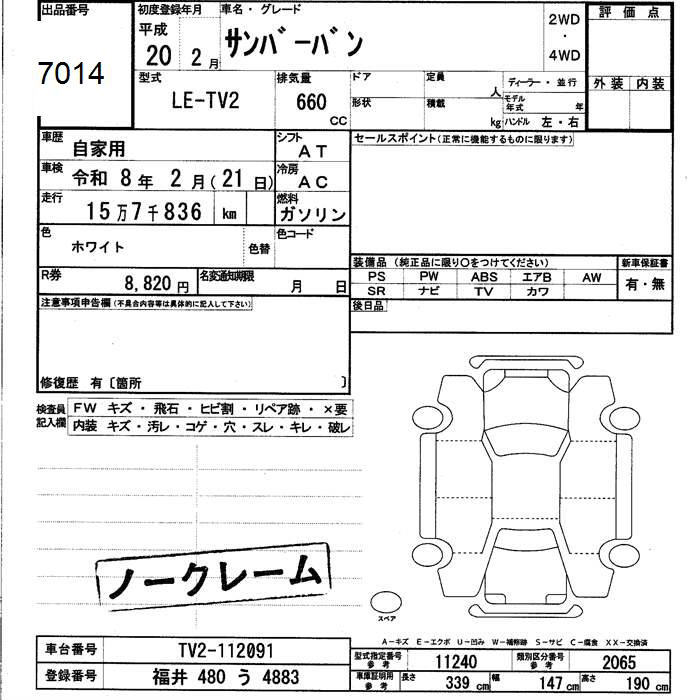 出品番号
7014
初度登録年月
平成
20 2月
車名・グレード
サンバーバン
2WD
・
4WD
評価点
外装 内装
型式
LE-TV2
排気量
660
CC
ドア
形状
定員
人
積載
kg
ディーラー・並行
モデル年式 年
ハンドル 左・右
車歴
自家用
シフト
AT
車検
令和 8年 2月(21日)
冷房
AC
走行
15万7千836 km
燃料
ガソリン
色
ホワイト
色替
色コード
R券
8,820円
名変通知期限
月 日
セールスポイント(正常に機能するものに限ります)
装備品 (純正品に限り○をつけてください)
新車保証書
PS PW ABS エアB AW
SR ナビ TV カワ
有・無
後日品
注意事項申告欄(不具合内容等は具体的に記入して下さい)
修復歴 有〔箇所 〕
検査員記入欄
FW キズ・飛石・ヒビ割・リペア跡・×要
内装 キズ・汚レ・コゲ・穴・スレ・キレ・破レ
ノークレーム
スペア
A-キズ E-エクボ U-凹み W-補修跡 S-サビ C-腐食 XX-交換済
車台番号 TV2-112091
登録番号 福井 480 う 4883
型式指定番号参考 11240 類別区分番号参考 2065
車庫証明用参考 長さ 339cm 幅 147cm 高さ 190cm